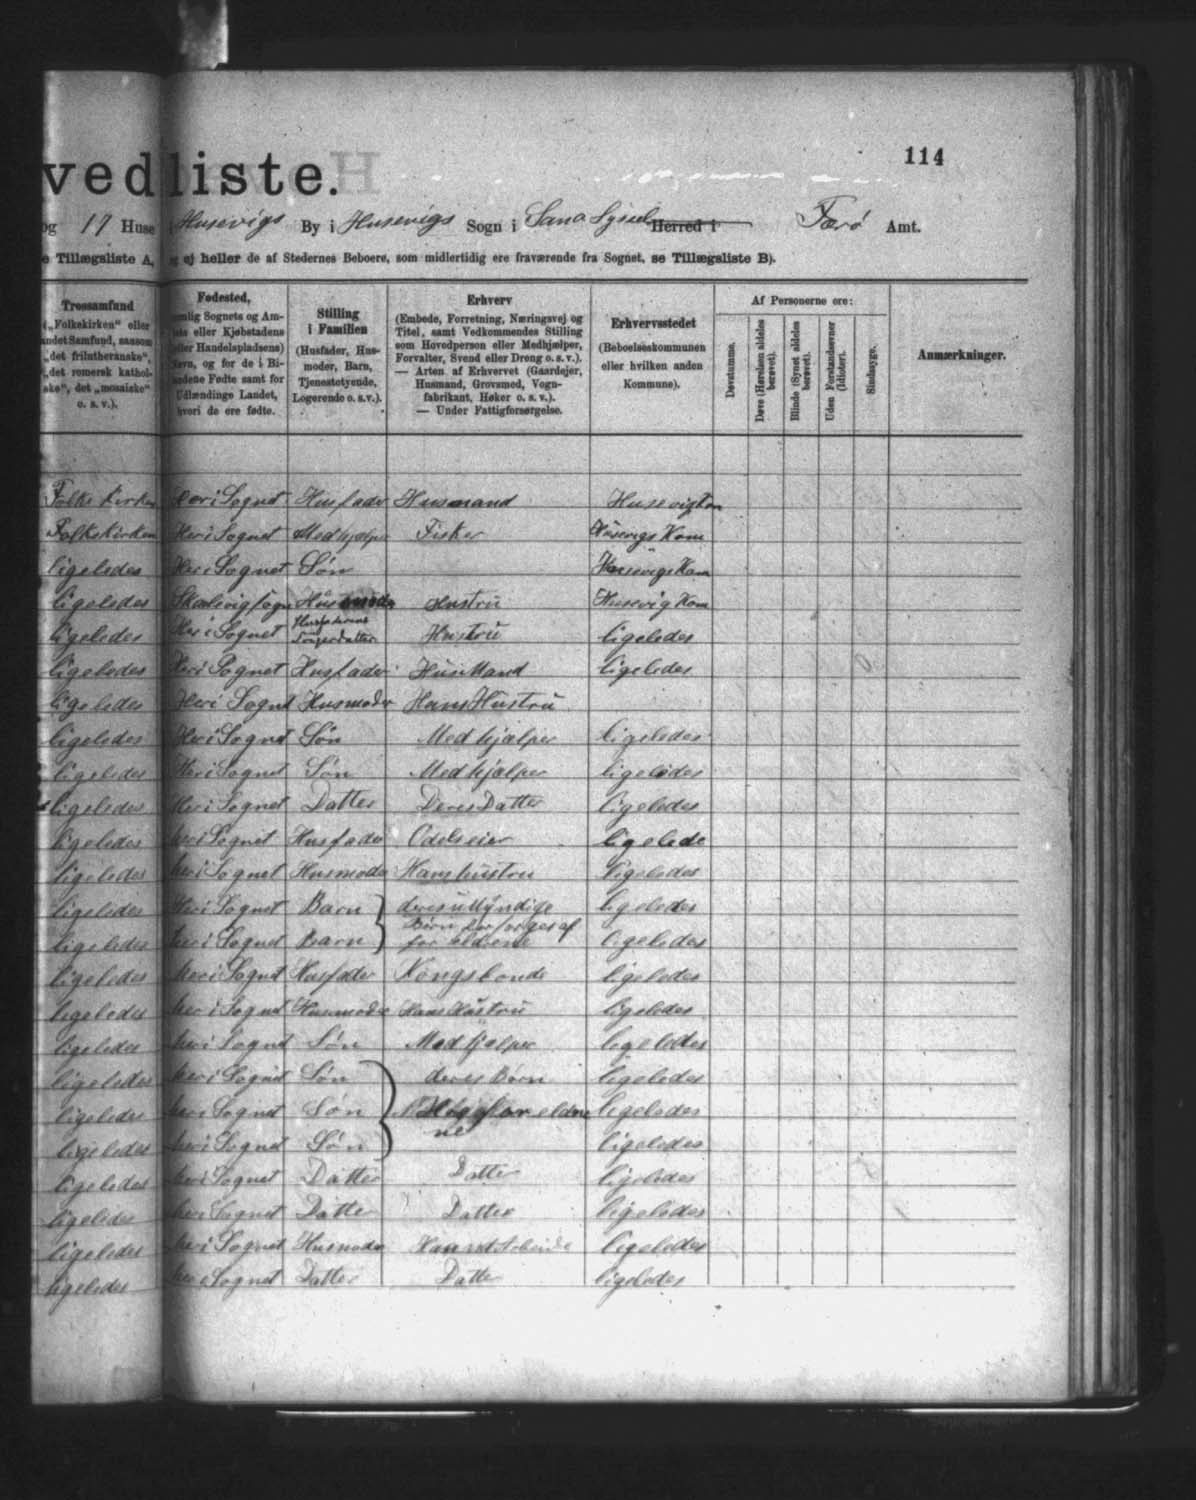 114
vedliste.
og 17 Huse i Husevigs By i Husevigs Sogn i Sand Syssel Herred i Færø Amt.
e Tillægsliste A, og ej heller de af Stedernes Beboere, som midlertidig ere fraværende fra Sognet, se Tillægsliste B).
Trossamfund
(„Folkekirken“ eller
andet Samfund, saasom
„det frilutheranske“,
„det romersk kathol-
ske“, det „mosaiske“
o. s. v.).
Fødested,
nemlig Sognets og Am-
tets eller Kjøbstadens
(eller Handelspladsens)
Navn, og for de i Bi-
landene Fødte samt for
Udlændinge Landet,
hvori de ere fødte.
Stilling
i Familien
(Husfader, Hus-
moder, Barn,
Tjenestetyende,
Logerende o. s. v.).
Erhverv
(Embede, Forretning, Næringsvej og
Titel, samt Vedkommendes Stilling
som Hovedperson eller Medhjælper,
Forvalter, Svend eller Dreng o. s. v.).
— Arten af Erhvervet (Gaardejer,
Husmand, Grovsmed, Vogn-
fabrikant, Høker o. s. v.).
— Under Fattigforsørgelse.
Erhvervsstedet
(Beboelseskommunen
eller hvilken anden
Kommune).
Af Personerne ere:
Døvstumme.
Døve (Hørelsen aldeles
berøvet).
Blinde (Synet aldeles
berøvet).
Uden Forstandsevner
(Idioter).
Sindssyge.
Anmærkninger.
Folkekirken Heri Sognet Husfader Husmand Husevig Kom
Folkekirken Heri Sognet Medhjælper Fisker Husevigs Kom
ligeledes Heri Sognet Søn Husevigs Kom
ligeledes Skaalevig Sogn Husmoder Hustru Husevig Kom
ligeledes Heri Sognet Husfaderens
Hustru ligeledes
ligeledes Heri Sognet Husfader HusMand ligeledes
ligeledes Heri Sognet Husmoder Hans Hustru
ligeledes Heri Sognet Søn Medhjælper ligeledes
ligeledes Heri Sognet Søn Medhjælper ligeledes
ligeledes Heri Sognet Datter Deres Datter ligeledes
ligeledes heri Sognet Husfader Odelseier ligelede
ligeledes heri Sognet Husmoder Hans hustru ligeledes
ligeledes Heri Sognet Barn deres uMyndige ligeledes
Børn forsørges af
ligeledes heri Sognet Barn for ældrene ligeledes
ligeledes heri Sognet Husfader Kongsbonde ligeledes
ligeledes heri Sognet Husmoder Hans Hustru ligeledes
ligeledes heri Sognet Søn Medhjælper ligeledes
ligeledes heri Sognet Søn deres Børn ligeledes
ligeledes heri Sognet Søn forældre ligeledes
ne
ligeledes heri Sognet Søn ligeledes
ligeledes heri Sognet Datter Datter ligeledes
ligeledes heri Sognet Datter Datter ligeledes
ligeledes heri Sognet Husmoder Haandarbeide ligeledes
ligeledes heri Sognet Datter Datter ligeledes